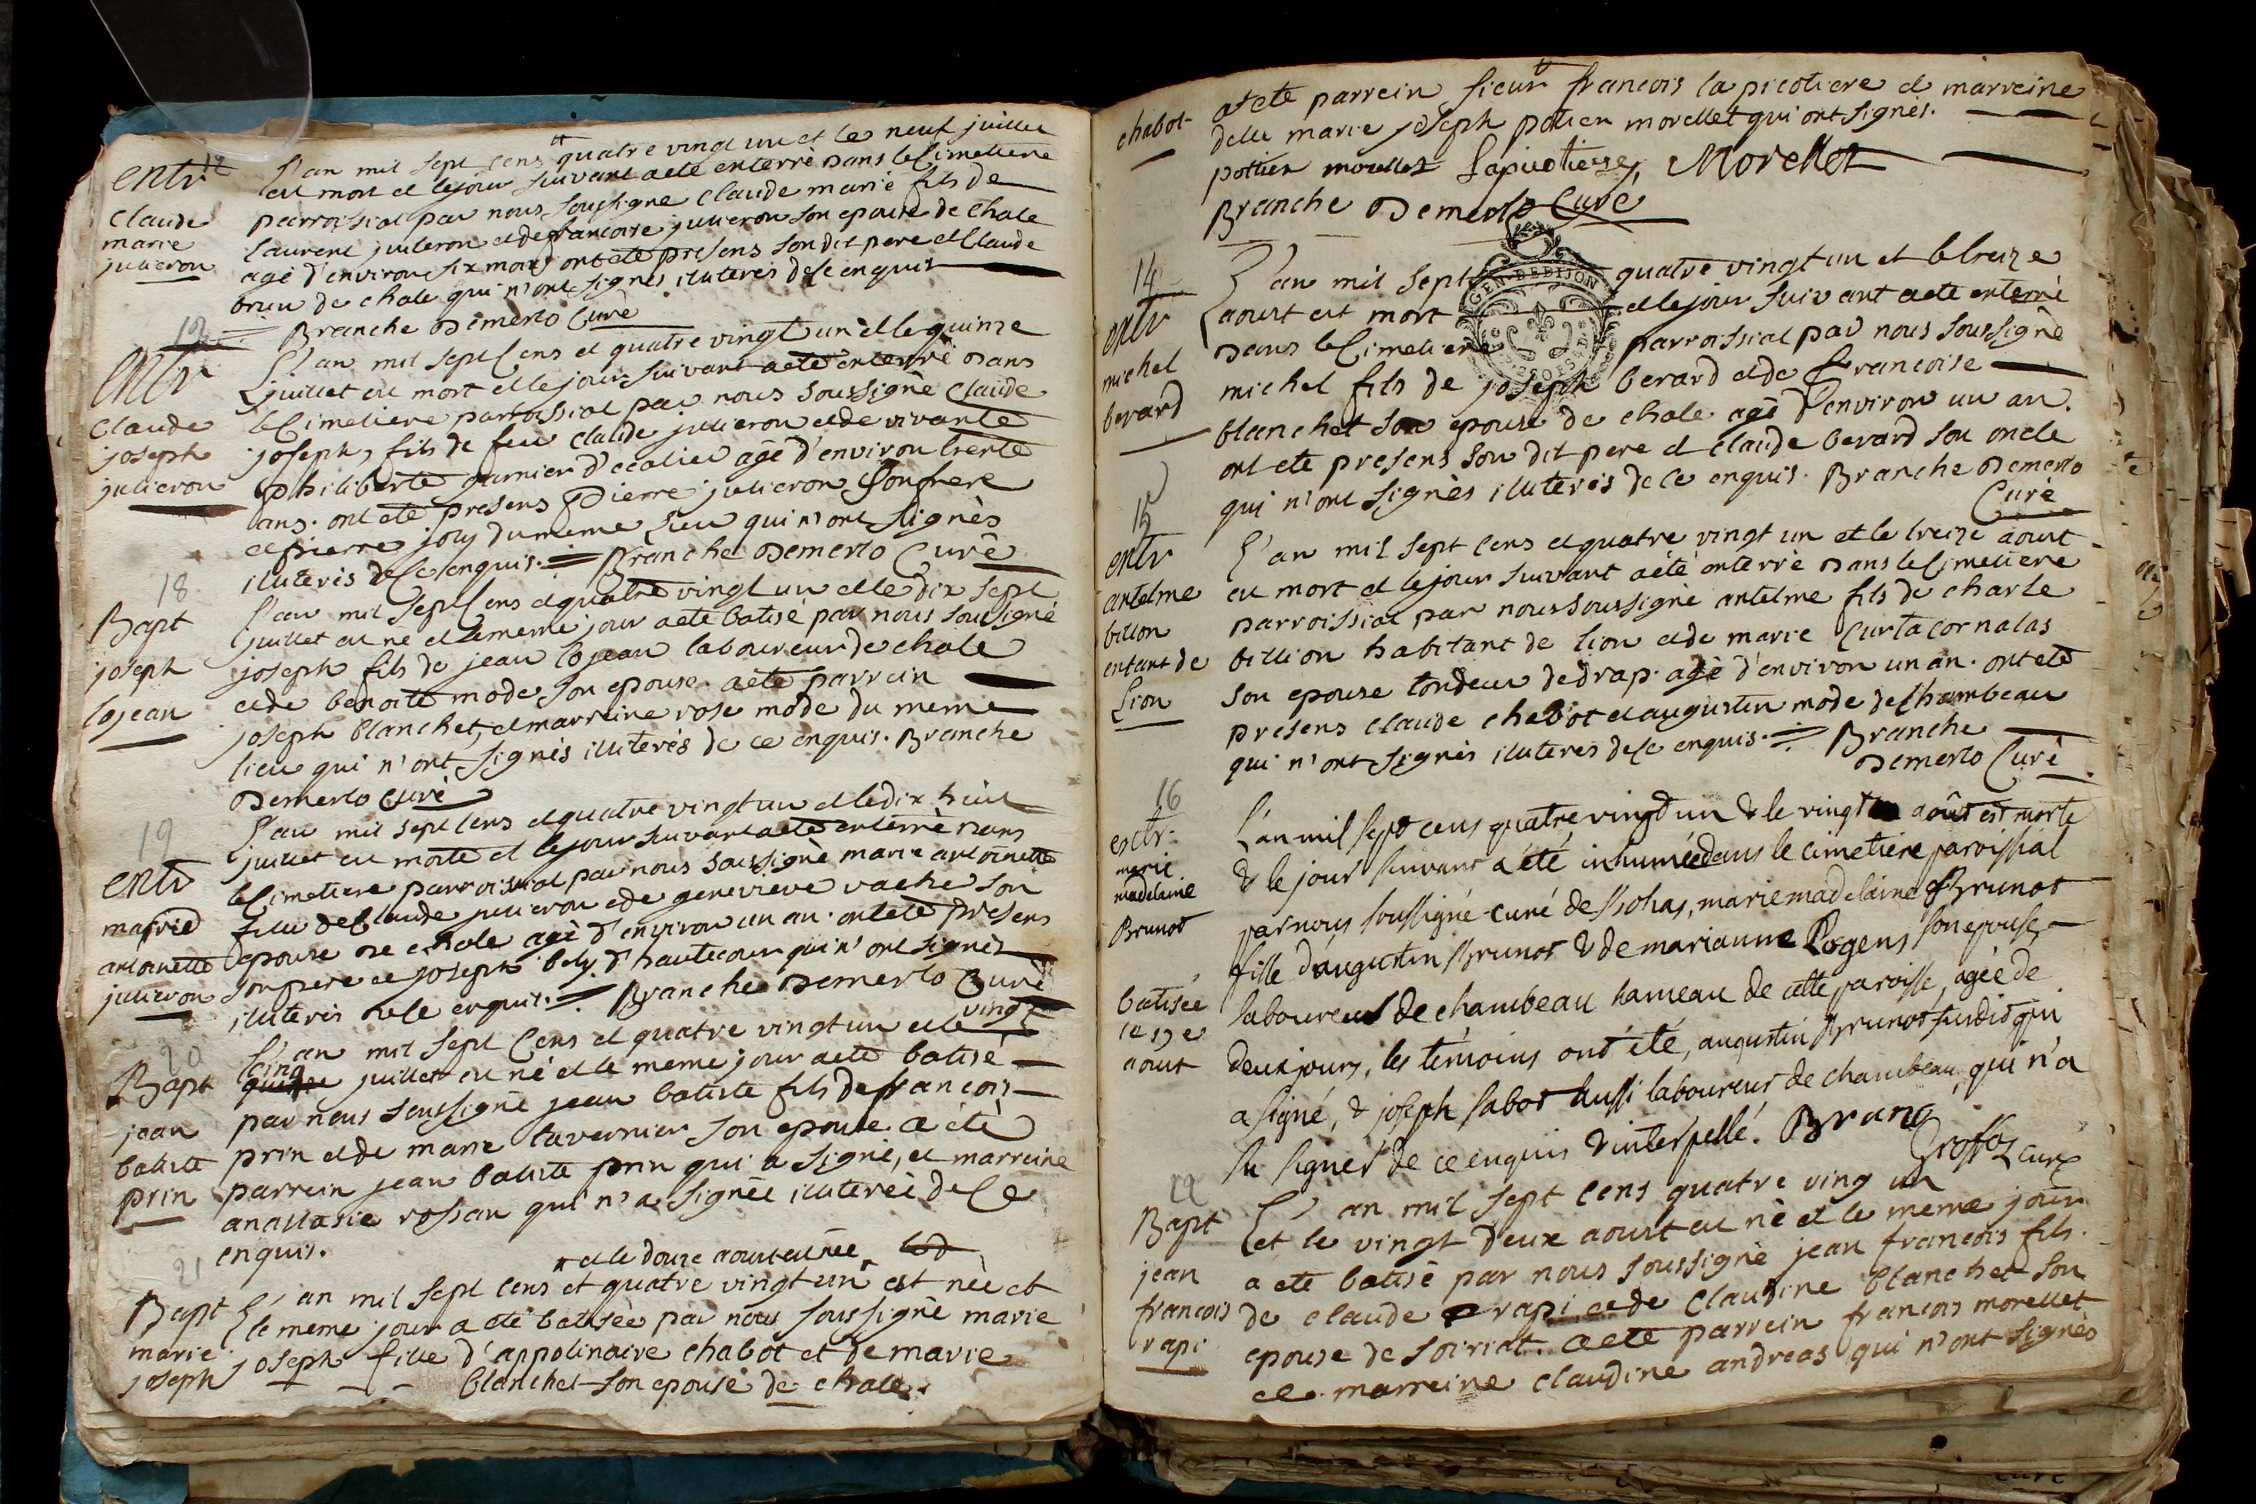 entr
claude
marie
julieron
L'an mil sept cens quatre vingt un et le neuf juillet
est mort et le jour suivant a eté enterré dans le Cimetiere
parroissial par nous soussigné claude marie fils de
laurent julieron et de francoise julieron son epouse de chale
agé d'environ six mois ont eté presens son dit pere et Claude
brun de chale qui n'ont signés illiterés de ce enquis
Branche Demerlo Curé
entr
claude
joseph
julieron
L'an mil sept Cens et quatre vingt un et le quinze
juillet est mort et le jour suivant a eté enterré dans
le Cimetiere parroissial par nous soussigné Claude
joseph, fils de feu claude julieron et de vivante
philiberte garnier d' agé d'environ trente
ans. ont eté presens Pierre julieron son frere
et pierre joly du meme lieu qui n'ont signés
illiterés de ce enquis. Branche Demerlo Curé
18
Bapt
joseph
lojean
L'an mil sept Cens et quatre vingt un et le dix sept
juillet est né et le meme jour a eté batisé par nous soussigné
joseph fils de jean lojean laboureur de chale
et de benoite mode son epouse. a eté parrein
joseph blanchet, et marreine rose mode du meme
lieu qui n'ont signés illiterés de ce enquis. Branche
Demerlo Curé
19
entr
marie
antoinette
julieron
L'an mil sept Cens et quatre vingt un et le dix huit
juillet est morte et le jour suivant a eté enterré dans
le Cimetiere parroissial par nous soussigné marie antoinette
fille de Claude julieron et de genevieve vache son
epouse de chale agé d'environ un an. ont eté presens
son pere et joseph bely d'hautecour qui n'ont signés
illiterés de ce enquis. Branche Demerlo Curé
20
Bapt
jean
batiste
prin
L'an mil sept Cens et quatre vingt un et le vingt
cinq juillet est né et le meme jour a eté batisé
par nous soussigné jean batiste fils de francois
prin et de marie tavernier son epouse a été
parrein jean batiste prin qui a signé, et marreine
anastasie rossan qui n'a signée illiterée de ce
enquis.
21
et le douze aoust est née
Bapt
marie
joseph
L'an mil sept cens et quatre vingt un est née et
le meme jour a eté batisée par nous soussigné marie
joseph fille d'appolinaire chabot et de marie
blanchet son epouse de chale.
chabot
a eté parrein sieur francois la picotiere et marreine
delle marie joseph potier morellet qui ont signés.
pottier morellet Lapicotiere, Morellet
Branche Demerlo Curé
14
entr
michel
berard
L'an mil sept quatre vingt un et le treize
aoust est mort et le jour suivant a eté enterré
dans le Cimetiere parroissial par nous soussigné
michel fils de joseph berard et de Francoise
blanchet son epouse de chale agé d'environ un an.
ont eté presens son dit pere et claude berard son oncle
qui n'ont signés illiterés de ce enquis. Branche Demerlo
Curé
15
entr
antelme
billon
enfant de
Lion
L'an mil sept cens et quatre vingt un et le treize aoust
est mort et le jour suivant a eté enterré dans le Cimetiere
parroissial par nous soussigné antelme fils de charle
billion habitant de lion et de marie Curta cornalas
son epouse tondeur de drap. agé d'environ un an. ont eté
presens claude chabot et augustin mode de Chambeau
qui n'ont signés illiterés de ce enquis. Branche
Demerlo Curé
16
entr.
marie
madelaine
Brunot
batisée
le 19e
aout
L'an mil sept cens quatre vingt un & le vingt août est morte
& le jour suivant a été inhumée dans le cimetiere paroissial
par nous soussigné curé de , marie madelaine Brunot
fille d'augustin Brunot & de marianne Rogens son epouse
laboureur de chambeau hameau de cette paroisse, agée de
deux jours, les témoins ont été, augustin Brunot susdit qui
a signé, & joseph sabot aussi laboureur de chambeau, qui n'a
su signer de ce enquis & interpellé. Bruno
Groffoz curé
22
Bapt
jean
francois
rapi
L'an mil sept cens quatre ving un
et le vingt deux aoust est né et le meme jour
a eté batisé par nous soussigné jean francois fils
de claude rapi et de Claudine blanchet son
epouse de soiriat. a eté parrein francois morellet
et marreine claudine andreas qui n'ont signés